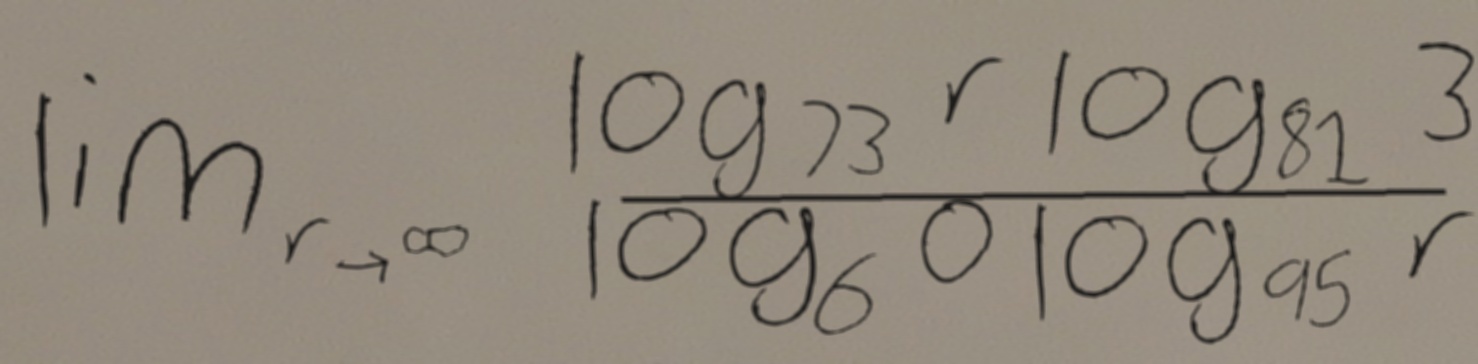 \lim_{r \to \infty} \frac{\log_{73} r \log_{81} 3}{\log_{6} 0 \log_{95} r}